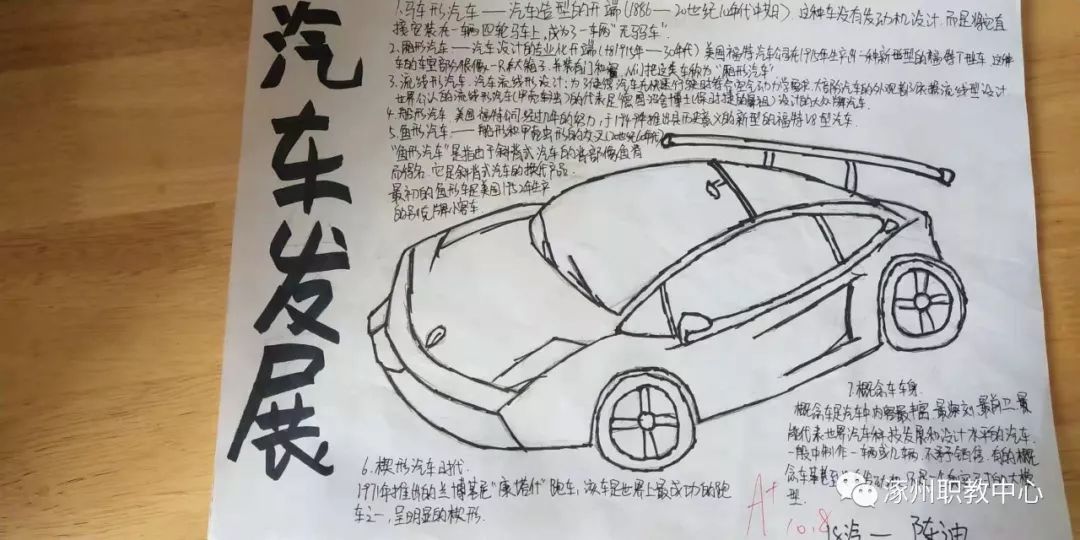 汽车发展
1.马车形汽车——汽车造型的开端(1886—20世纪10年代中期).这种车没有发动机设计.而是将它直
接安装在一辆四轮马车上,成为了一车的"无马马车".
2.厢形汽车——汽车设计的专业化开端(由1915年—30年代)美国福特汽车公司在1915年生产出一种新型的福特T型车 这种
车的车室部分很像一只大箱子.并装有门和窗 人们把这类车称为"厢形汽车"
3.流线形汽车.汽车流线形设计:
世界公认的流线形汽车(甲壳车虫)的代表是德国
设计的大众牌汽车.
4.船形汽车 美国福特公司经过几年的努力,于1949年推出具历史意义的新型的福特V8型汽车.
5.鱼形汽车——船形和甲壳虫形的交叉(20世纪
"鱼形汽车"是指由于斜背式汽车的背部像鱼脊
而得名.它是斜背式汽车的换代产品.
最初的鱼形车是美国1952年生产
的别克牌小客车
6.楔形汽车时代.
1971年推出的兰博基尼"康塔什"跑车,该车是世界上最成功的跑
车之一,呈明显的楔形.
7.概念车车身.
概念车是汽车中内容最丰富.最深刻.最前卫.最
能代表世界汽车科技发展和设计水平的汽车.
一般中制作一辆或几辆,不予销售.有的概
念车甚至
型.
A+
10.8
18汽一 陈迪
涿州职教中心